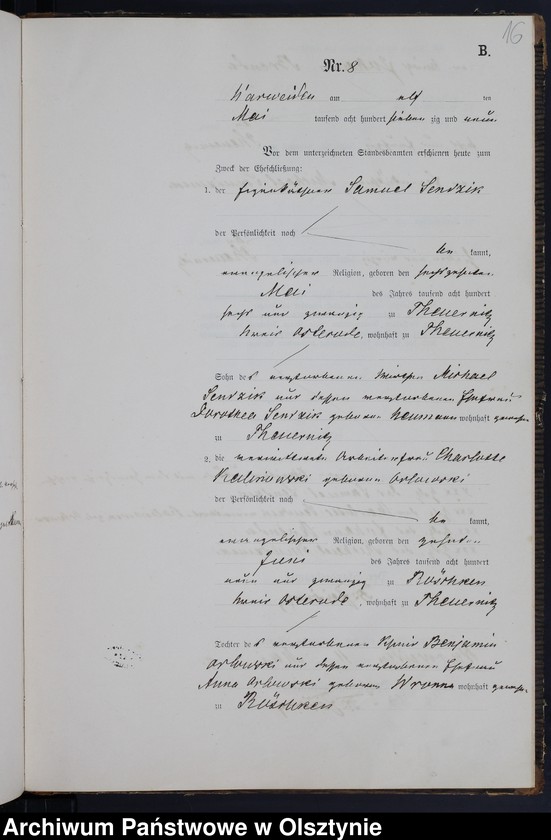 16
B.
Nr. 8
Warweiden am elf ten
Mai tausend acht hundert sieben zig und neun
Vor dem unterzeichneten Standesbeamten erschienen heute zum
Zweck der Eheschließung:
1. der Eigenkäthner Samuel Sendzik
der Persönlichkeit nach
be kannt,
evangelischer Religion, geboren den sechszehnten
Mai des Jahres tausend acht hundert
sechs und zwanzig zu Theuernitz
Kreis Osterode, wohnhaft zu Theuernitz
Sohn des verstorbenen Wirthen Michael
Sendzik und dessen verstorbenen Ehefrau
Dorothea Sendzik geborene Neumann wohnhaft gewesen
zu Theuernitz
2. die verwittwete Arbeiterfrau Charlotte
Kalinowski geborene Orlowski
der Persönlichkeit nach
be kannt,
evangelischer Religion, geboren den zehnten
Juni des Jahres tausend acht hundert
neun und zwanzig zu Röschken
Kreis Osterode, wohnhaft zu Theuernitz
Tochter des verstorbenen Benjamin
Orlowski und dessen verstorbenen Ehefrau
Anna Orlowski geborene Wronna wohnhaft gewesen
zu Röschken
Archiwum Państwowe w Olsztynie